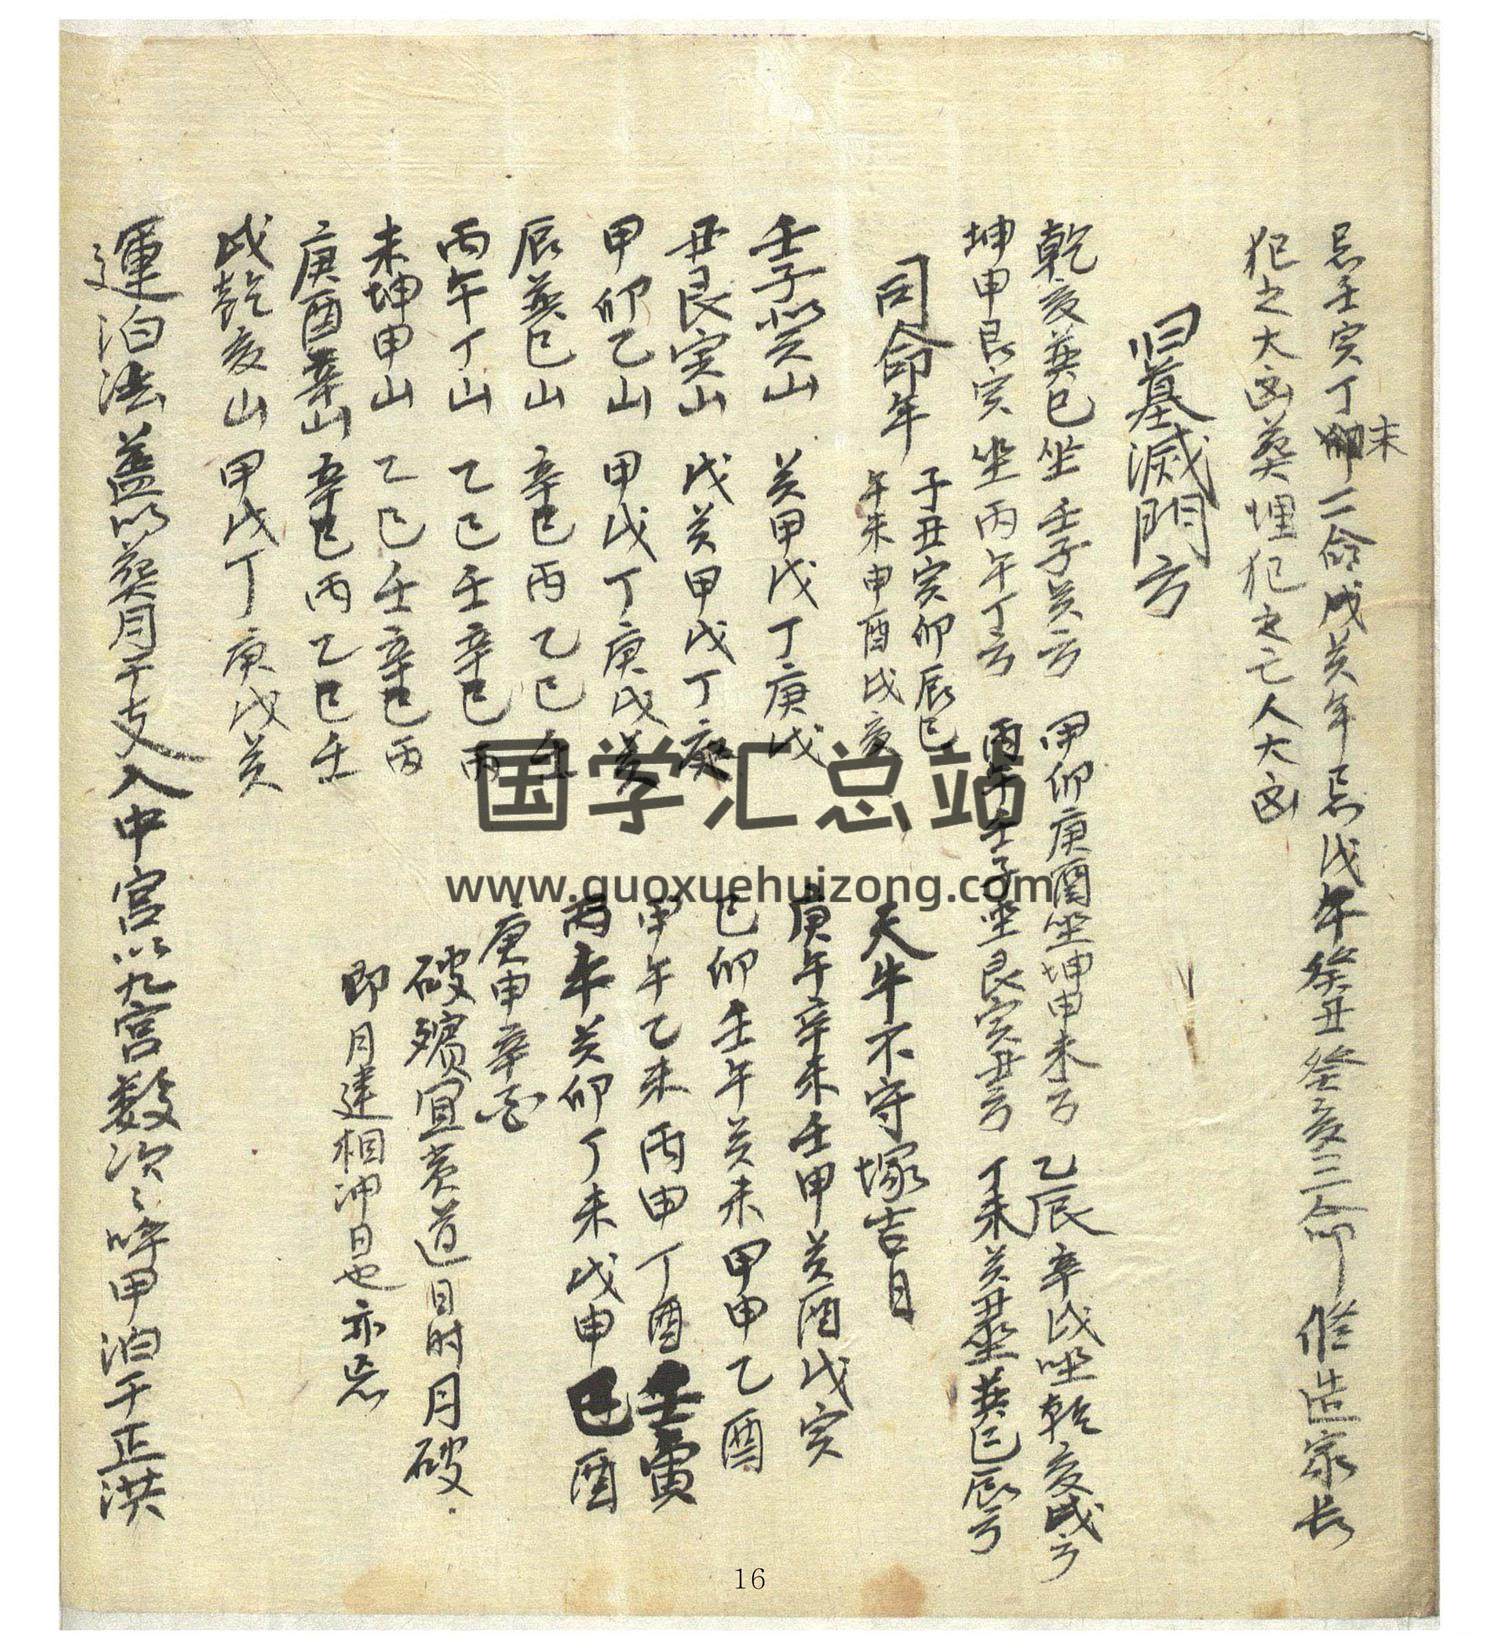 忌壬寅丁未二命戌癸年忌戊午癸丑癸亥三命修造家长
犯之大凶葬埋犯之亡人大凶
归墓滅門方
乾亥巽巳坐壬子癸方 甲卯庚酉坐坤申未方 乙辰辛戌坐乾亥戌方
坤申艮寅坐丙午丁方 丙午壬子坐艮寅丑方 丁未癸丑坐巽巳辰方
司命年 子丑寅卯辰巳
午未申酉戌亥
壬子癸山 癸甲戊丁庚戊
丑艮寅山 戊癸甲戊丁庚
甲卯乙山 甲戊丁庚戊癸
辰巽巳山 辛巳丙乙巳壬
丙午丁山 乙巳壬辛巳丙
未坤申山 乙巳壬辛巳丙
庚酉辛山 辛巳丙乙巳壬
戌乾亥山 甲戊丁庚戊癸
天牛不守塚吉日
庚午辛未壬申癸酉戊寅
己卯壬午癸未甲申乙酉
甲午乙未丙申丁酉壬寅
丙午癸卯丁未戊申己酉
庚申辛酉
破殯宜黄道日时月破
即月建相冲日也亦忌
運泊法蓋以葬月干支入中宫以九宫数次ミ呼甲泊于正洪
国学汇总站
www.guoxuehuizong.com
16